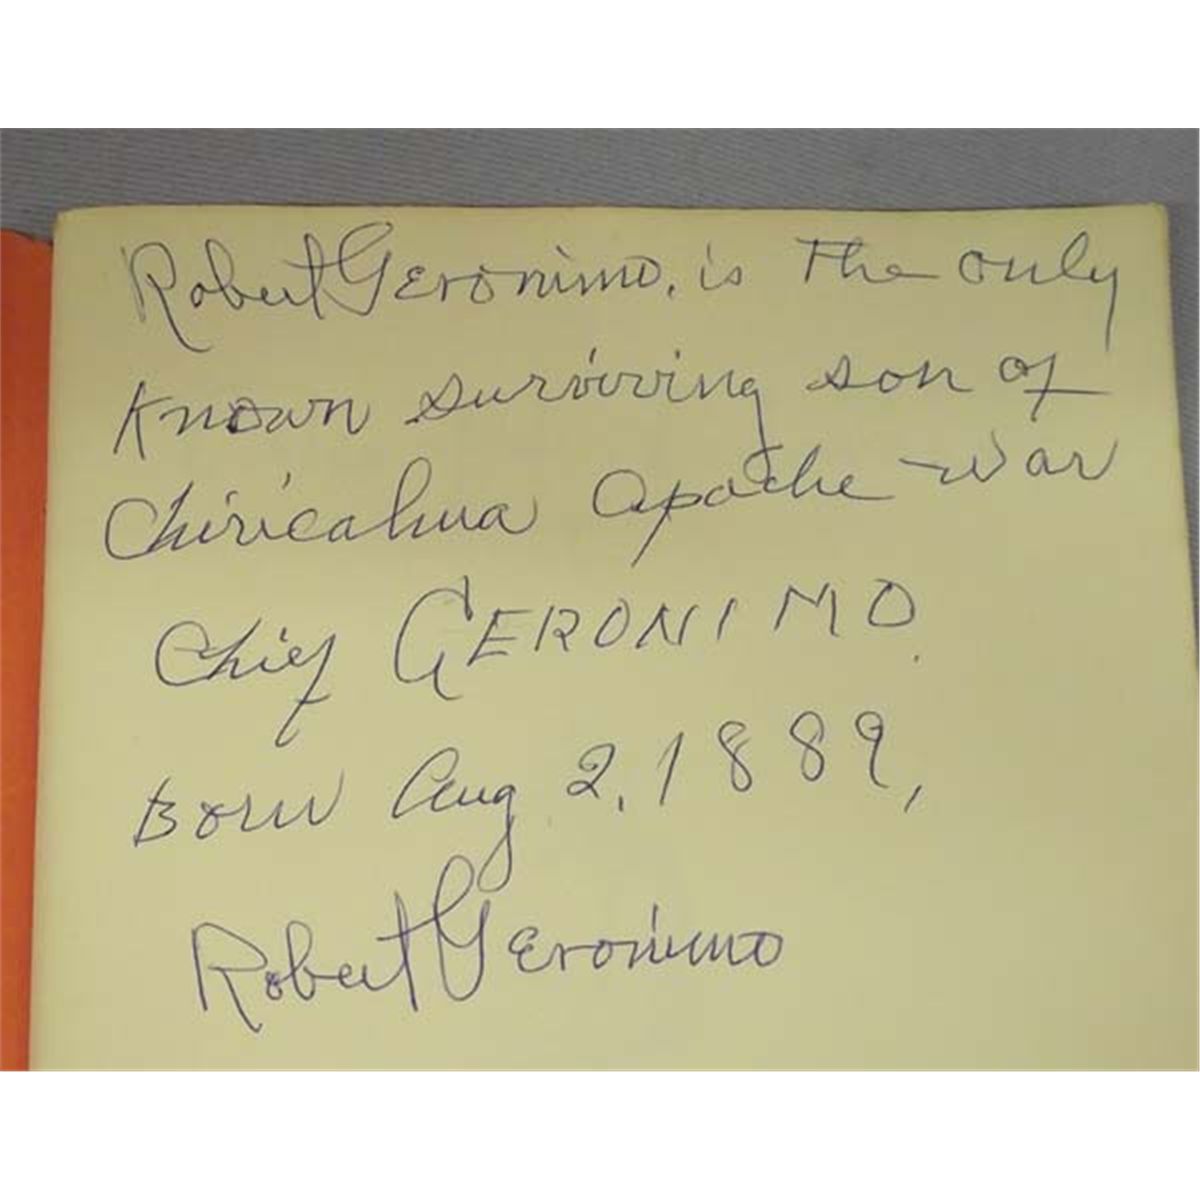 Robert Geronimo, is The only
Known surviving son of
Chiricahua Apache war
Chief GERONIMO.
Born Aug 2, 1889,
Robert Geronimo